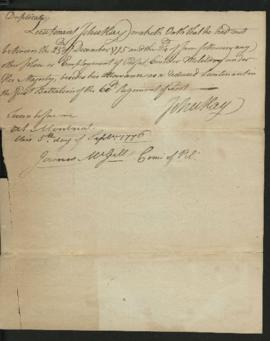 Duplicate
Lieutenant John Hay maketh Oath that he had not
between the 25th December 1775 and the 24th of June following any
other place or Employment of Profit Civil or Military under
His Majesty, besides his allowance as a Reduced Lieutenant in
the Battalion of the 60th Regiment of Foot
John Hay
Sworn before me
at Montreal
this 5th day of Septr 1776
James McGill Comr of Pe.